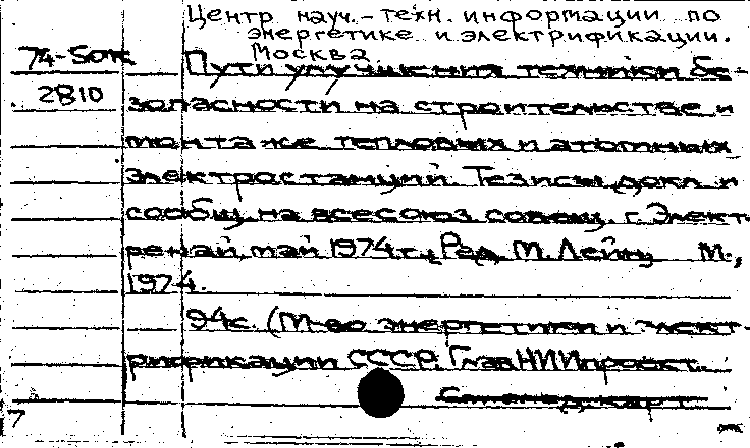 Центр науч.-техн. информации по
энергетике и электрификации.
Москва
74-5отк
2810
Пути улучшения техники бе-
зопасности на строительстве и
монтаже тепловых и атомных
электростанций. Тезисы докл. и
сообщ. на всесоюз. совещ. г. Элект-
ренай, май 1974 г. Ред. М. Лейн, М.,
1974.
94с. (М-во энергетики и элект-
рификации СССР. ГлавНИИпроект.
карт
7